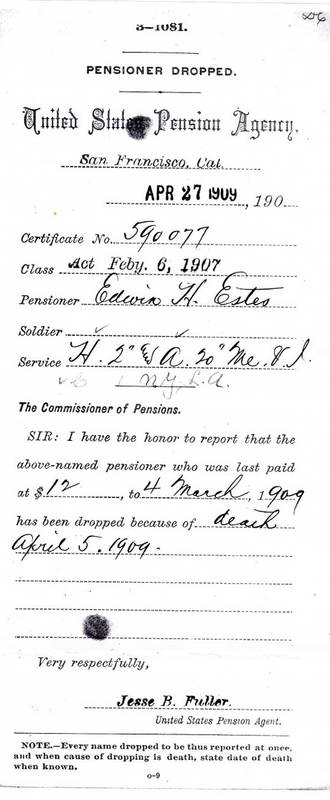 3-1081.
PENSIONER DROPPED.
United States Pension Agency,
San Francisco, Cal.
APR 27 1909, 190
Certificate No. 590077
Class Act Feby. 6, 1907
Pensioner Edwin H. Estes
Soldier
Service H. 2" & A. 20" Me. V. I.
N.Y. L.A.
The Commissioner of Pensions.
SIR: I have the honor to report that the
above-named pensioner who was last paid
at $12, to 4 March, 1909
has been dropped because of death
April 5, 1909.
Very respectfully,
Jesse B. Fuller.
United States Pension Agent.
NOTE.—Every name dropped to be thus reported at once,
and when cause of dropping is death, state date of death
when known.
o-9